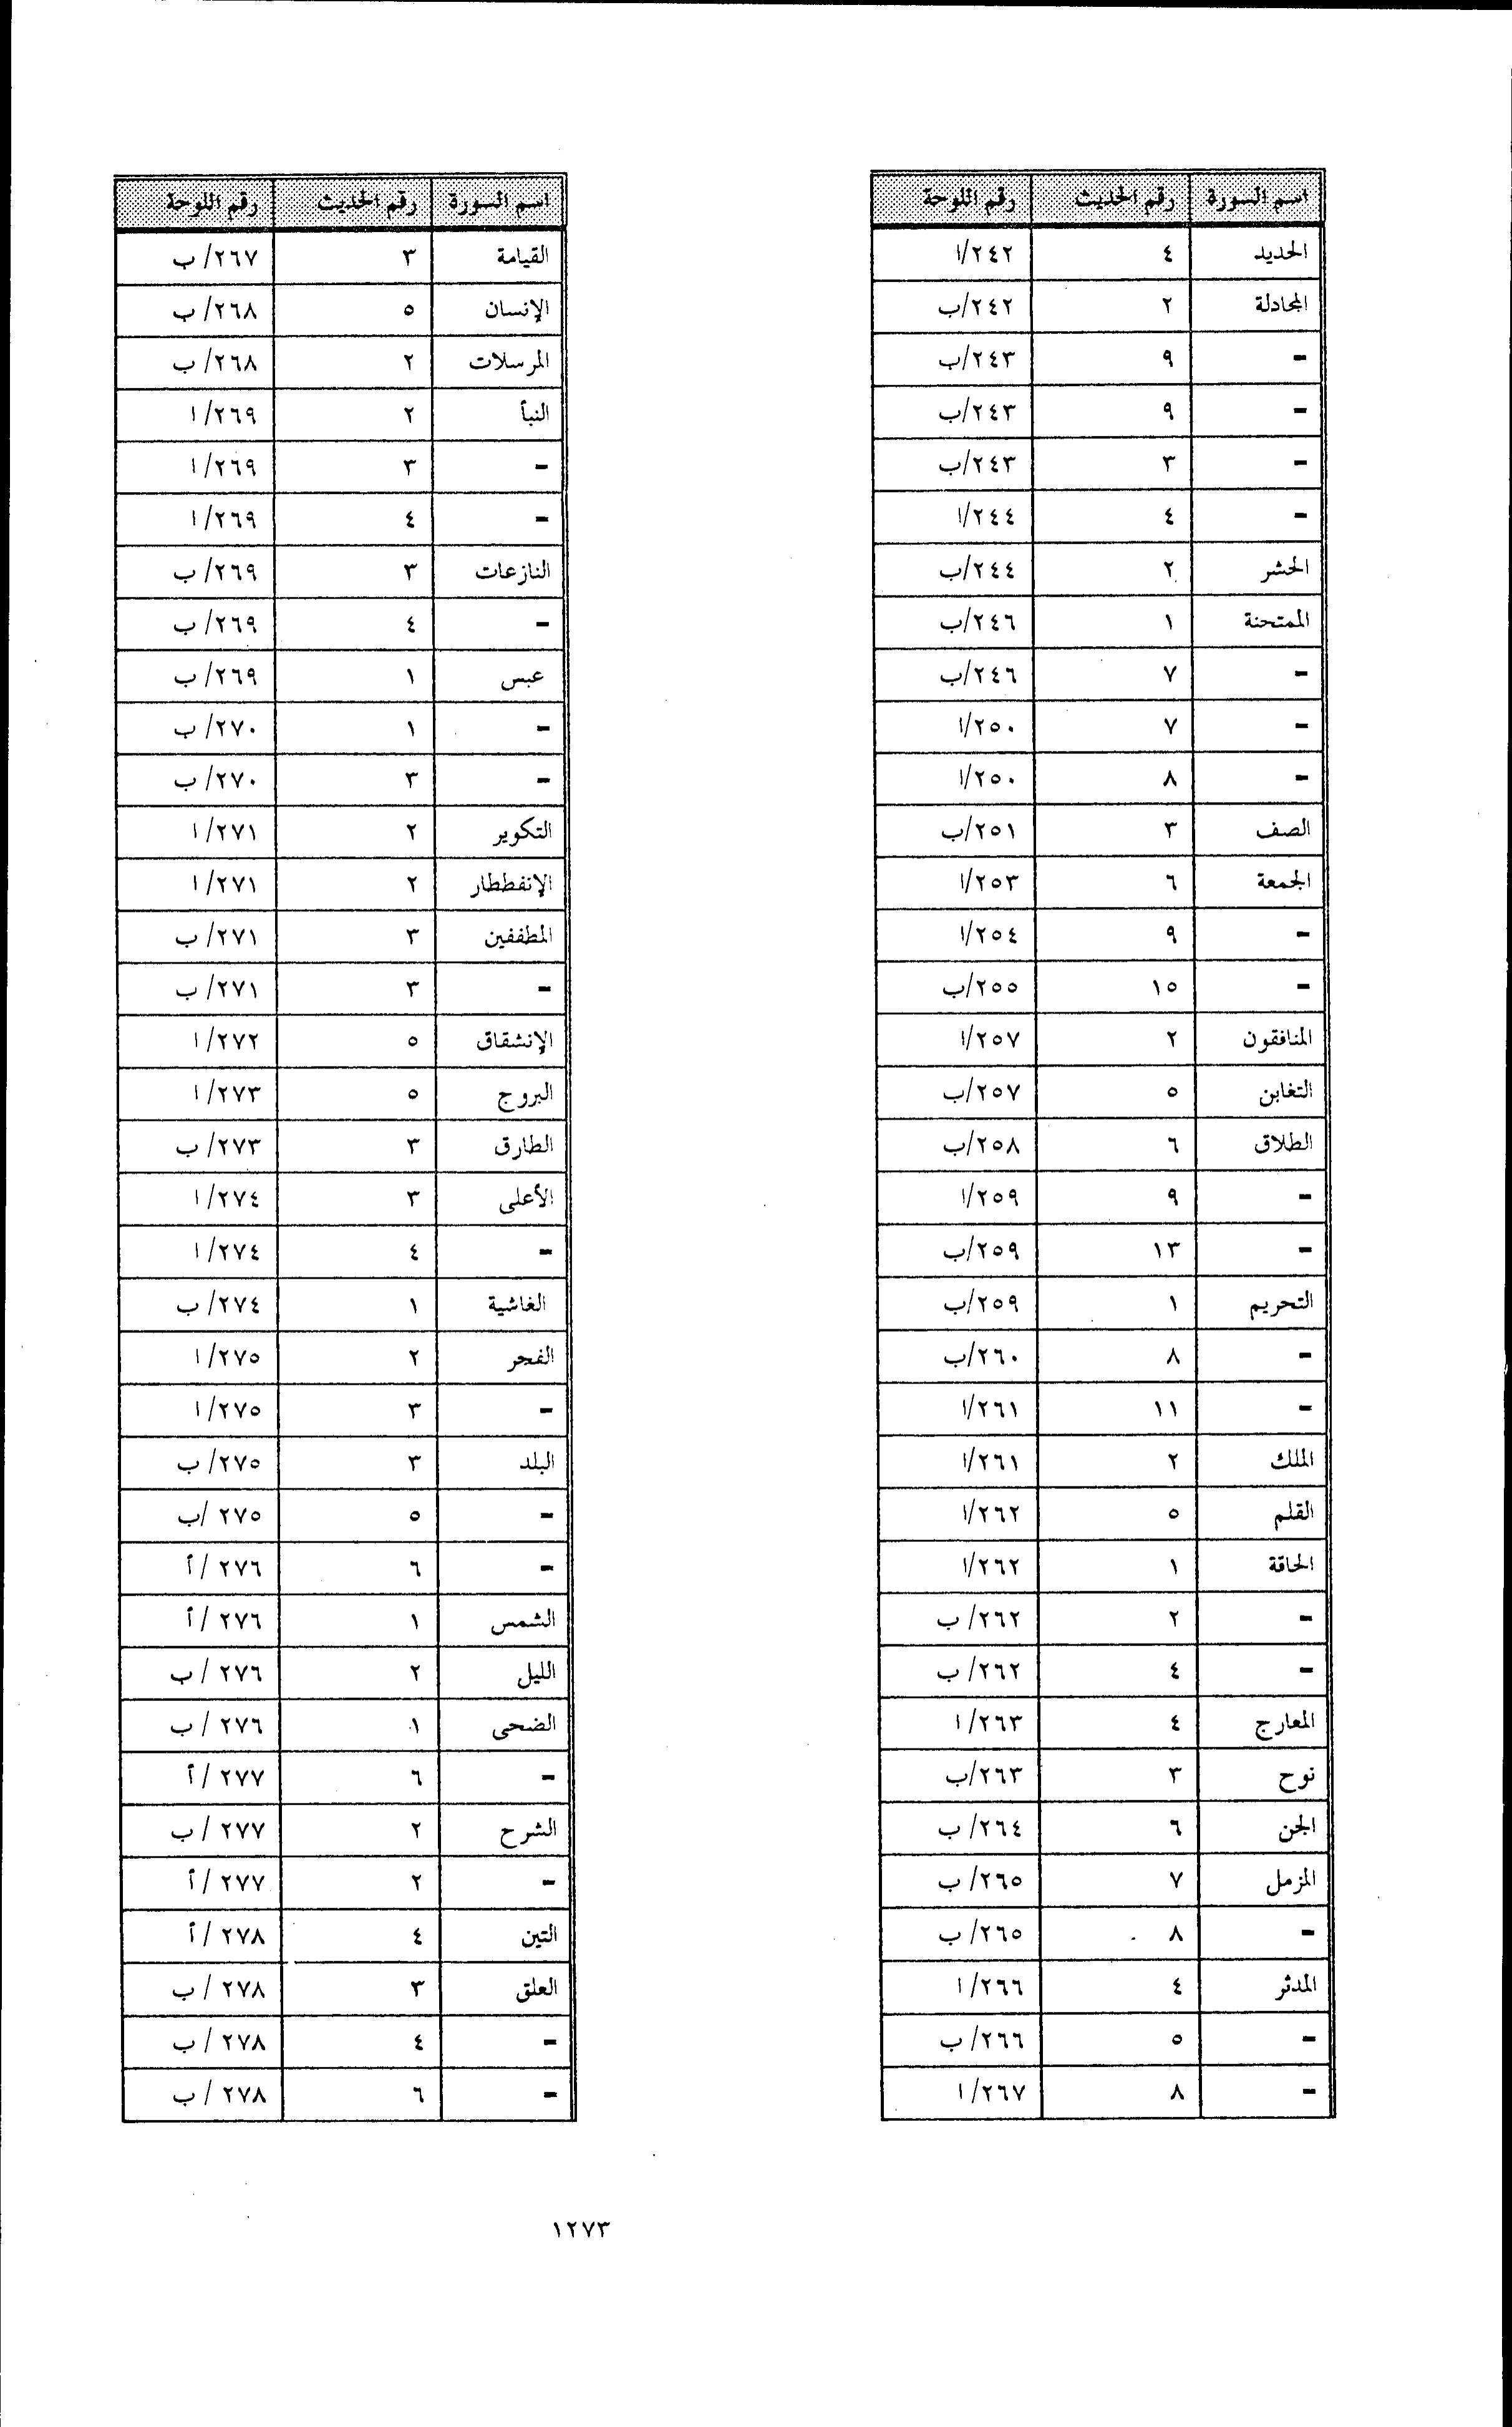 اسم السورة رقم الحديث رقم اللوحة
الحديد ٤ ٢٤٢/ا
المجادلة ٢ ٢٤٢/ب
- ٩ ٢٤٣/ب
- ٩ ٢٤٣/ب
- ٣ ٢٤٣/ب
- ٤ ٢٤٤/ا
الحشر ٢ ٢٤٤/ب
الممتحنة ١ ٢٤٦/ب
- ٧ ٢٤٦/ب
- ٧ ٢٥٠/ا
- ٨ ٢٥٠/ا
الصف ٣ ٢٥١/ب
الجمعة ٦ ٢٥٣/ا
- ٩ ٢٥٤/ا
- ١٥ ٢٥٥/ب
المنافقون ٢ ٢٥٧/ا
التغابن ٥ ٢٥٧/ب
الطلاق ٦ ٢٥٨/ب
- ٩ ٢٥٩/ا
- ١٣ ٢٥٩/ب
التحريم ١ ٢٥٩/ب
- ٨ ٢٦٠/ب
- ١١ ٢٦١/ا
الملك ٢ ٢٦١/ا
القلم ٥ ٢٦٢/ا
الحاقة ١ ٢٦٢/ا
- ٢ ٢٦٢/ ب
- ٤ ٢٦٢/ ب
المعارج ٤ ٢٦٣/ ا
نوح ٣ ٢٦٣/ب
الجن ٦ ٢٦٤/ ب
المزمل ٧ ٢٦٥/ ب
- ٨ ٢٦٥/ ب
المدثر ٤ ٢٦٦/ ا
- ٥ ٢٦٦/ ب
- ٨ ٢٦٧/ ا
اسم السورة رقم الحديث رقم اللوحة
القيامة ٣ ٢٦٧/ ب
الإنسان ٥ ٢٦٨/ ب
المرسلات ٢ ٢٦٨/ ب
النبأ ٢ ٢٦٩/ ا
- ٣ ٢٦٩/ ا
- ٤ ٢٦٩/ ا
النازعات ٣ ٢٦٩/ ب
- ٤ ٢٦٩/ ب
عبس ١ ٢٦٩/ ب
- ١ ٢٧٠/ ب
- ٣ ٢٧٠/ ب
التكوير ٢ ٢٧١/ ا
الإنفططار ٢ ٢٧١/ ا
المطففين ٣ ٢٧١/ ب
- ٣ ٢٧١/ ب
الإنشقاق ٥ ٢٧٢/ ا
البروج ٥ ٢٧٣/ ا
الطارق ٣ ٢٧٣/ ب
الأعلى ٣ ٢٧٤/ ا
- ٤ ٢٧٤/ ا
الغاشية ١ ٢٧٤/ ب
الفجر ٢ ٢٧٥/ ا
- ٣ ٢٧٥/ ا
البلد ٣ ٢٧٥/ ب
- ٥ ٢٧٥ /ب
- ٦ ٢٧٦ / أ
الشمس ١ ٢٧٦ / أ
الليل ٢ ٢٧٦ / ب
الضحى ١ ٢٧٦ / ب
- ٦ ٢٧٧ / أ
الشرح ٢ ٢٧٧ / ب
- ٢ ٢٧٧ / أ
التين ٤ ٢٧٨ / أ
العلق ٣ ٢٧٨ / ب
- ٤ ٢٧٨ / ب
- ٦ ٢٧٨ / ب
١٢٧٣